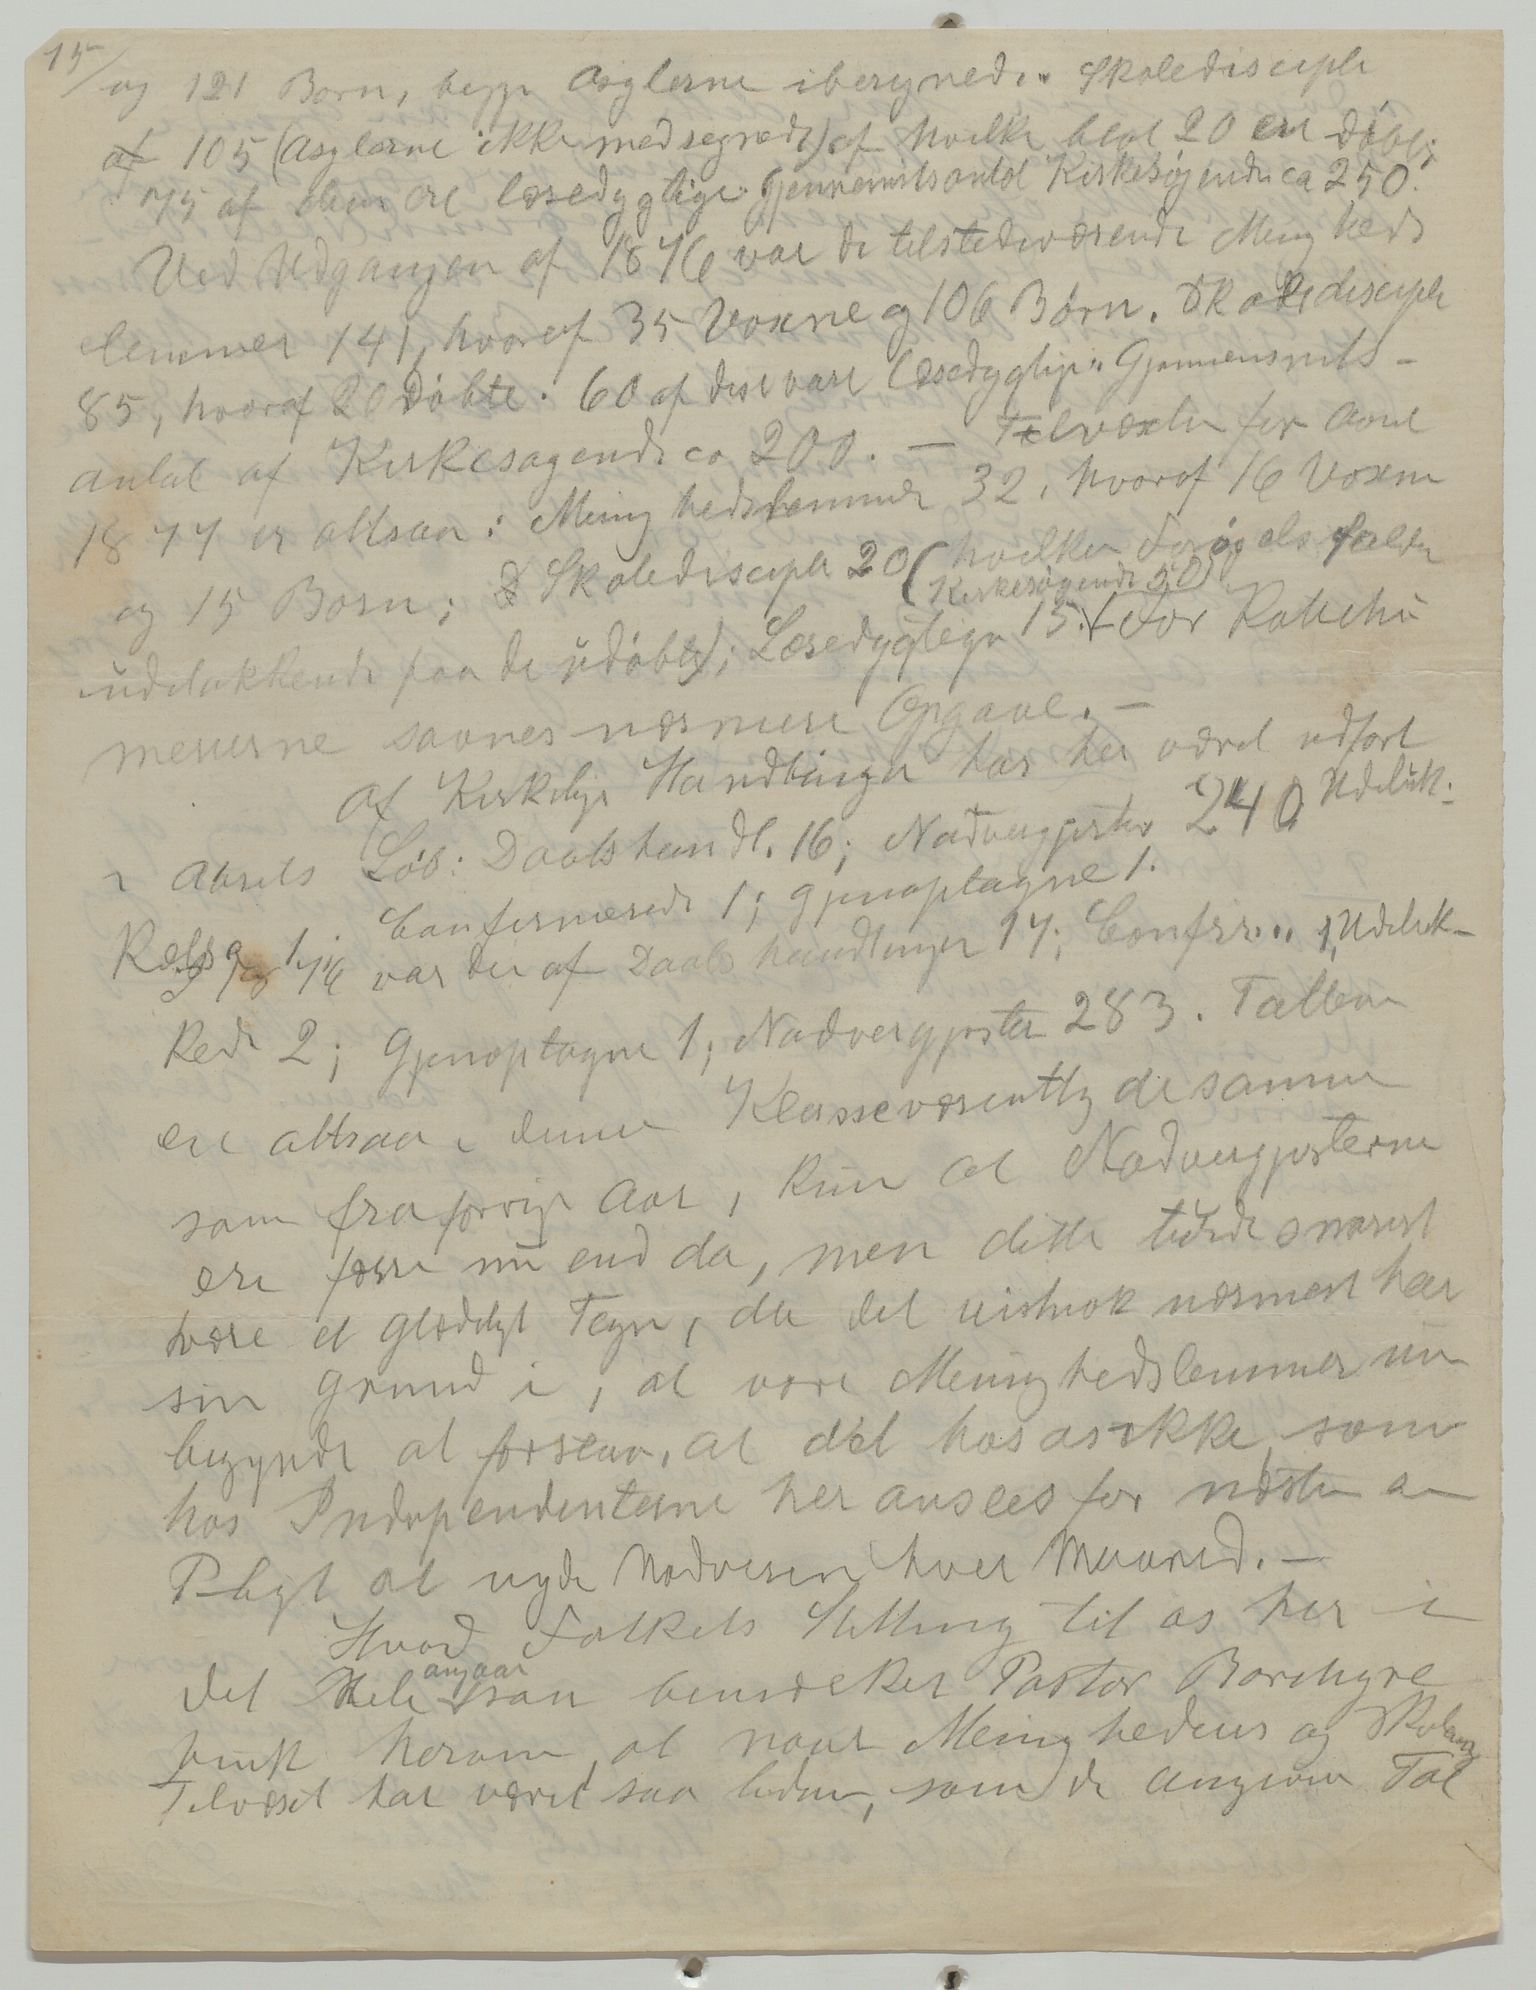 15/
og 121 Børn, begge Asylerne iberegnede. Skoledisciple
af 105 (Asylerne ikke medregnede) af hvilke blot 20 ere døbt;
75 af dem ere læsedygtige. Gjennemsnitsantal Kirkesøgende ca 250.
Ved Udgangen af 1876 var de tilstedeværende Menigheds
lemmer 141, hvoraf 35 Voxne og 106 Børn. Skoledisciple
85, hvoraf 20 Døbte. 60 af disse vare læsedygtige. Gjennemsnits-
antal af Kirkesøgende ca 200. — Tilvæxten for Aaret
1877 er altsaa: Menighedslemmer 32, hvoraf 16 Voxne
og 15 Børn; Skoledisciple 20 (hvilken Forøgelse falder
Kirkesøgende 50)
udelukkende paa de udøbte); Læsedygtige 15. For Katechu
menerne savnes nærmere Opgave. —
Af Kirkelige Handlinger har her været udført
i Aarets Løb: Daabshandl. 16; Nadvergjester 240 Udeluk-
Confirmerede 1; gjenoptagne 1.
var der af Daabshandlinger 17; Confir.. 1, Udeluk-
kede 2; Gjenoptagne 1; Nadvergjester 283. Tallene
ere altsaa i denne Klasse væsentlig de samme
som fra forrige Aar, kun at Nadvergjesterne
ere færre nu end da, men dette turde snarest
være et glædeligt Tegn, da det vistnok nærmest har
sin Grund i, at vore Menighedslemmer nu
begynde at forstaa, at det hos os ikke, som
hos Independenterne her ansees for næsten en
Pligt at nyde Nadveren hver Maaned. —
Hvad Folkets Stilling til os her i
angaar
det Hele saa bemærker Pastor Borchgre
vink herom, at naar Menighedens og Skolens
Tilvæxt har været saa liden, som de angivne Tal